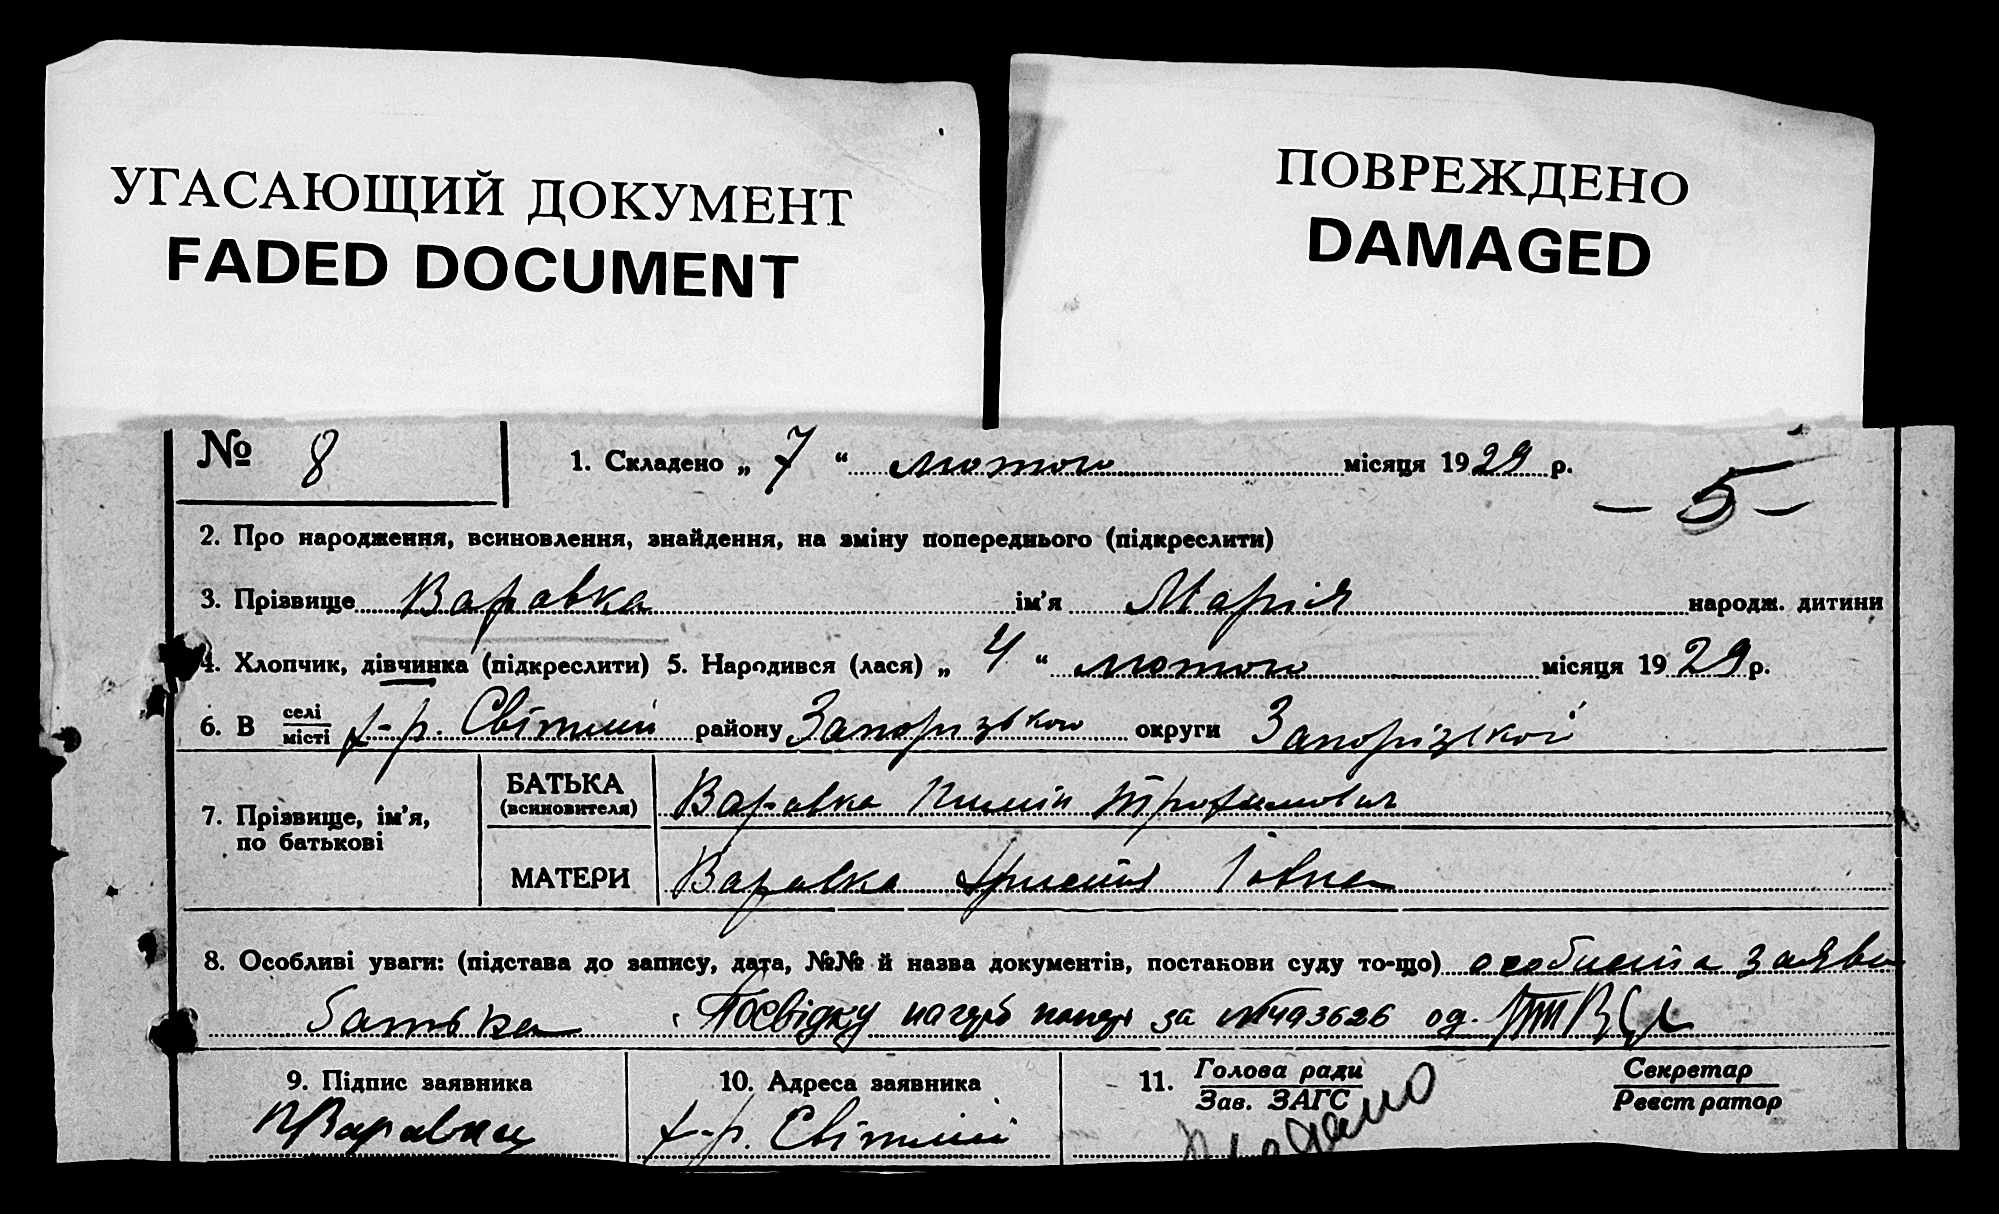 УГАСАЮЩИЙ ДОКУМЕНТ
FADED DOCUMENT
ПОВРЕЖДЕНО
DAMAGED
№ 8
1. Складено „ 7 “ лютого місяця 1929 р.
- 5 -
2. Про народження, всиновлення, знайдення, на зміну попереднього (підкреслити)
3. Прізвище Варавка ім’я Марія народж. дитини
4. Хлопчик, дівчинка (підкреслити) 5. Народився (лася) „ 4 “ лютого місяця 1929 р.
6. В селі місті х-р. Світлий району Запорізького округи Запорізької
7. Прізвище, ім’я, по батькові
БАТЬКА (всиновителя) Варавка Пимін Трофимович
МАТЕРИ Варавка Ївна
8. Особливі уваги: (підстава до запису, дата, №№ й назва документів, постанови суду то-що) особиста заява
батька Посвідку за № 493626 од.
9. Підпис заявника
ПВаравка
10. Адреса заявника
х-р. Світлий
11. Голова ради
Зав. ЗАГС
Секретар
Реєстратор